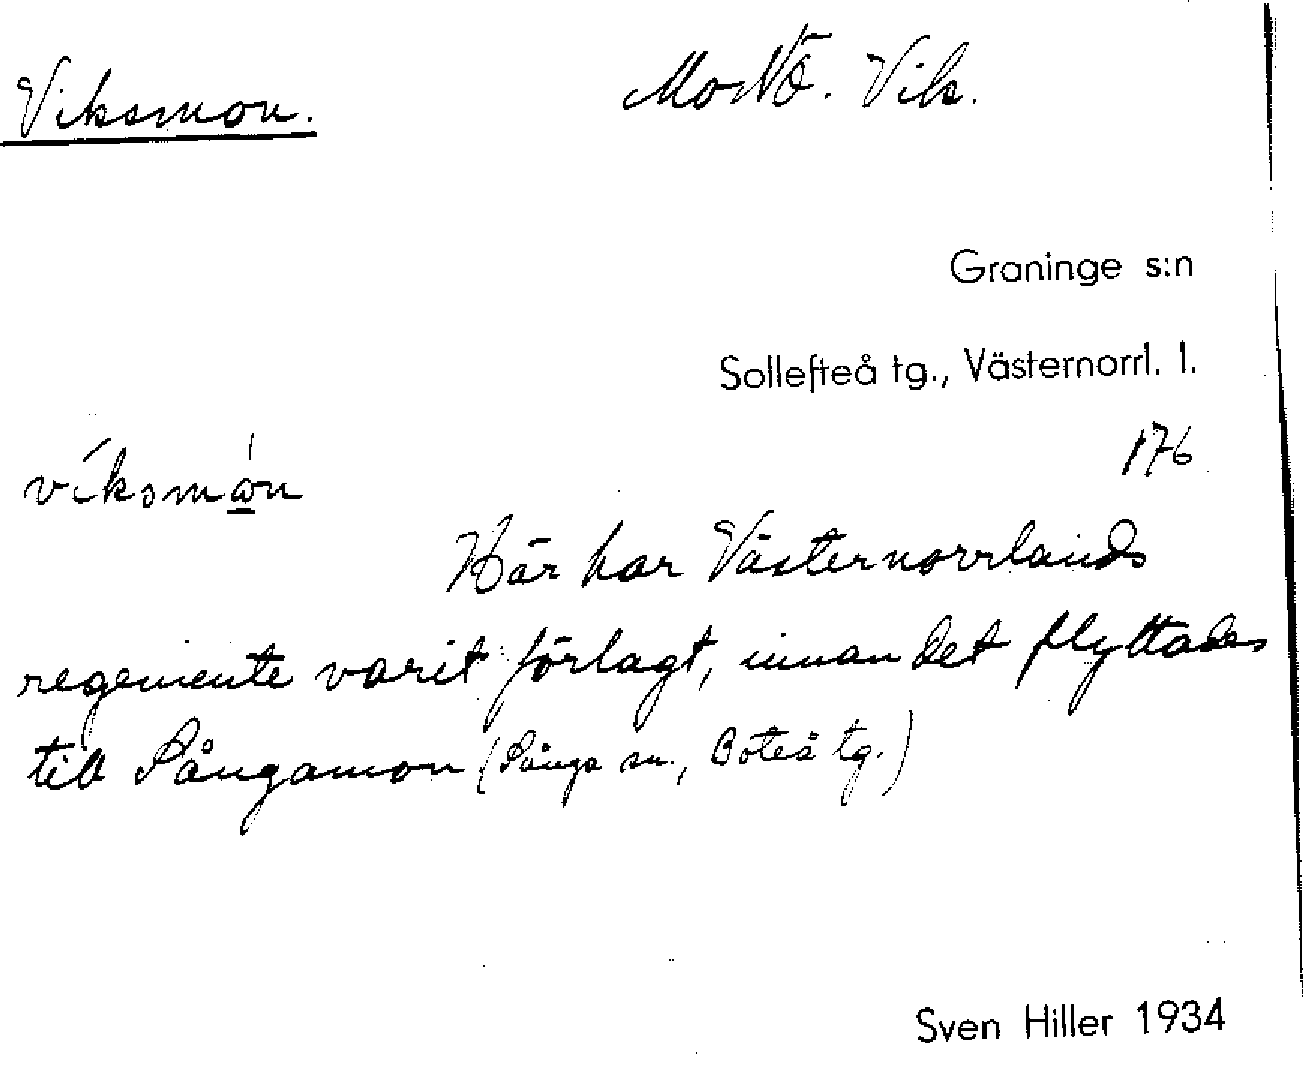 Viksmon.
Mo NÖ. Vik.
Graninge s:n
Sollefteå tg., Västernorrl. l.
176
víksmón
Här har Västernorrlands
regemente varit förlagt, innan det flyttades
till Sångamon (Sånga sn., Boteå tg.)
Sven Hiller 1934